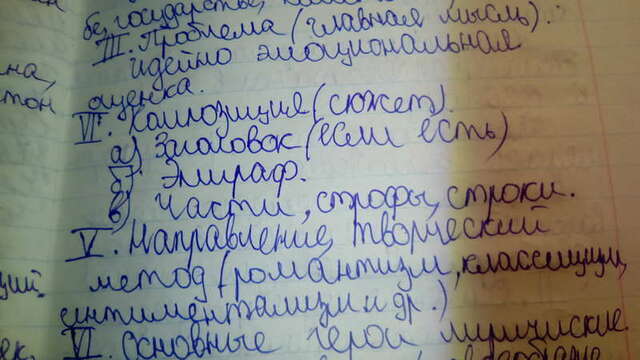 бе, государстве,
на, III. Проблема (главная мысль).
идейно эмоциональная
тон оценка.
VI. Композиция (сюжет).
а) Заголовок (если есть)
б) Эпиграф.
в) Части, строфы, строки.
V. Направление, творческий
метод (романтизм, классицизм,
сентиментализм и др.)
VI. Основные герои лирические.